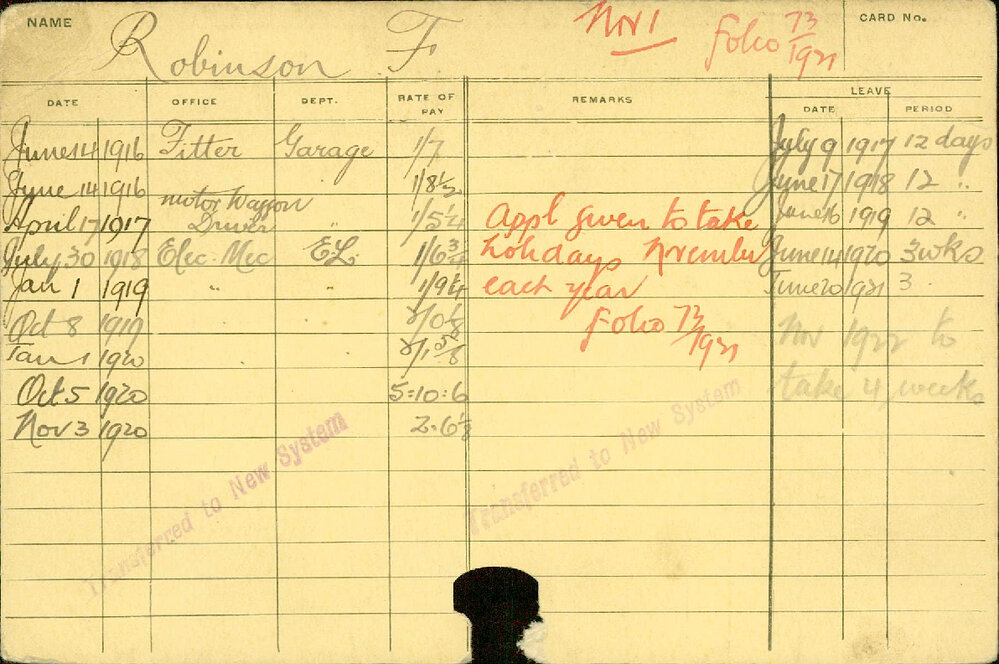 NAME Robinson F. Nov 1 Folio 73/1921 CARD No.
DATE OFFICE DEPT. RATE OF PAY REMARKS LEAVE DATE PERIOD
June 14 1916 Fitter Garage 1/7 July 9 1917 12 days
June 14 1916 1/8½ June 17 1918 12 "
April 17 1917 motor Waggon Driver " 1/5¼ Appl given to take June 16 1919 12 "
July 30 1918 Elec. Mec E.L. 1/6¾ holidays November June 14 1920 3 wks
Jan 1 1919 " " 1/9¼ each year June 20 1921 3
Oct 8 1919 2/0⅛ Folio 73/1921 Nov 1922 to
Jan 1 1920 2/1⅝
Oct 5 1920 5:10:6 take 4 weeks
Nov 3 1920 2.6⅛
Transferred to New System
Transferred to New System